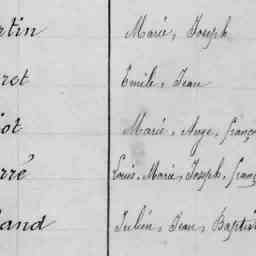 rtin Marie, Joseph
ret Emile, Jean
iot Marie, Ange, franço
rré Louis, Marie, Joseph, franç
land Julien, Jean, Baptis